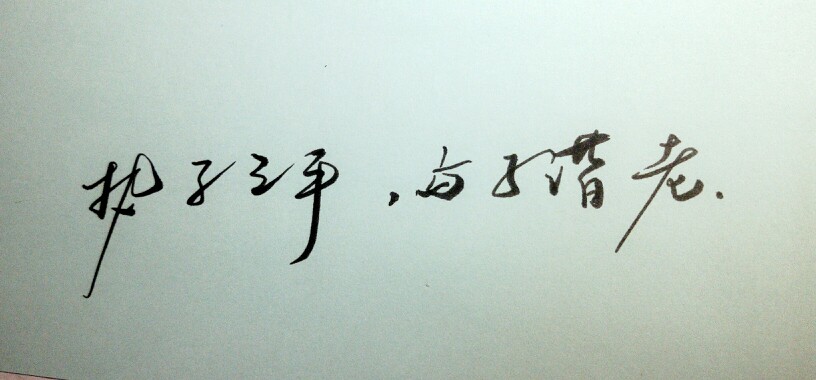 执子之手，与子谐老.